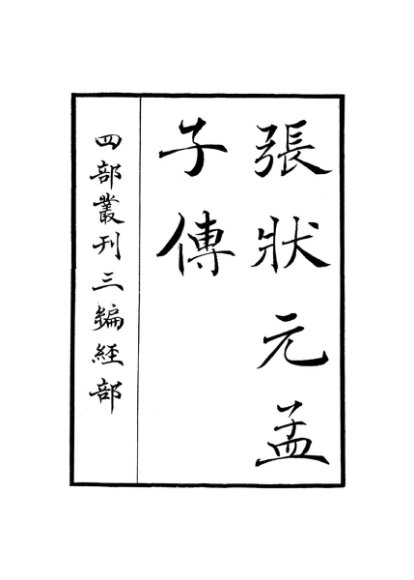 張狀元孟
子傳
四部叢刊三編經部